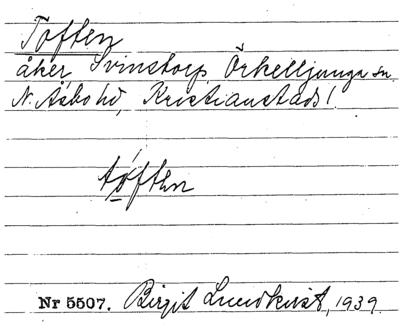 Toften
åker, Svinstorp, Örkelljunga sn.
N. Åsbo hd, Kristianstads l.
tóften
Nr 5507. Birgit Lundkvist, 1939.